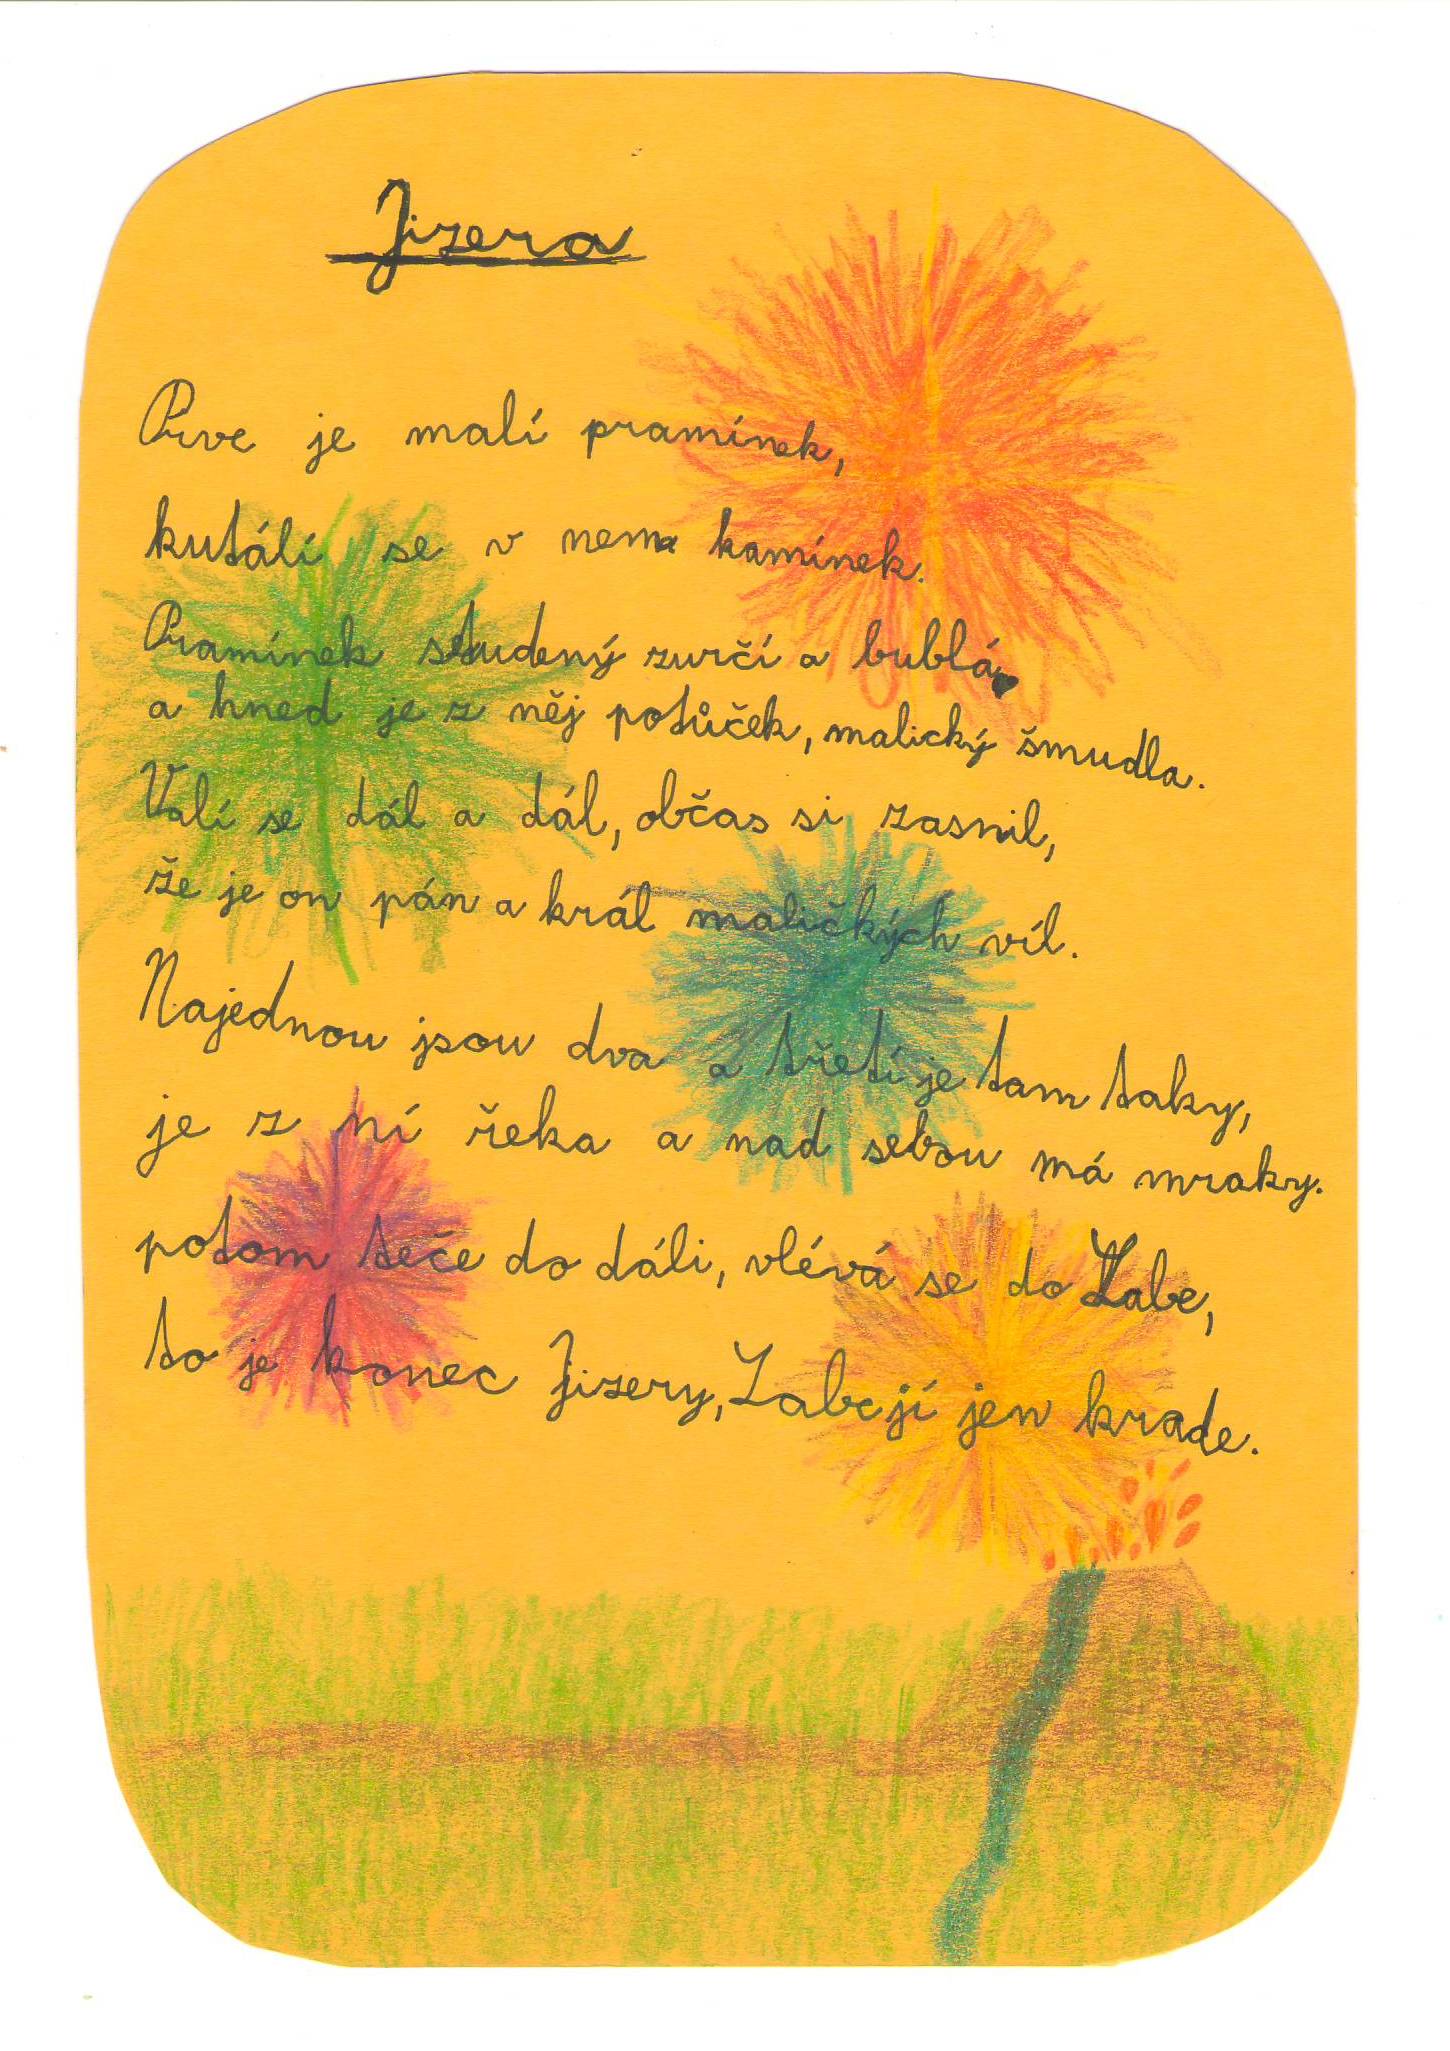 Jizera
Prve je malí pramínek,
kutálí se v nem kamínek.
Pramínek studený zurčí a bublá
a hned je z něj potůček, malický šmudla.
Valí se dál a dál, občas si zasnil,
že je on pán a král maličkých víl.
Najednou jsou dva a třetí je tam taky,
je z ní řeka a nad sebou má mraky.
potom teče do dáli, vlévá se do Labe,
to je konec Jizery, Labe jí jen krade.